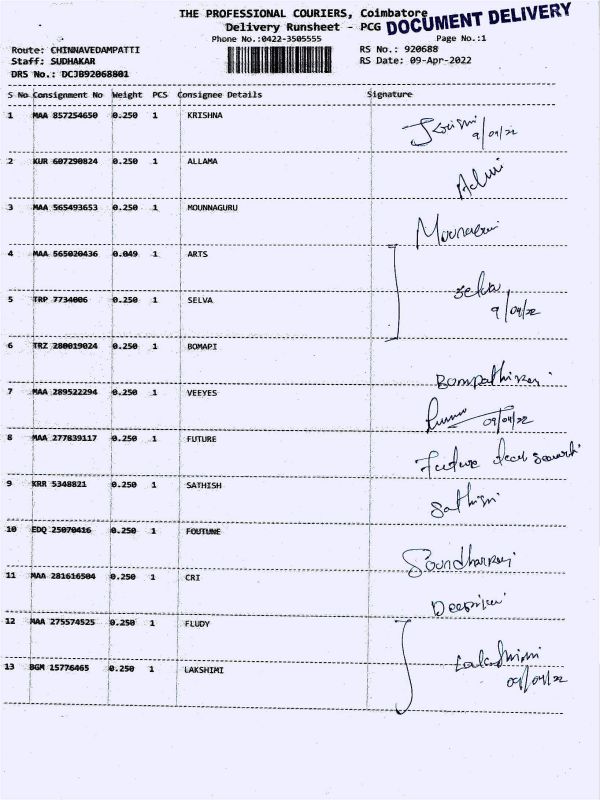 THE PROFESSIONAL COURIERS, Coimbatore
DOCUMENT DELIVERY
Delivery Runsheet - PCG
Phone No.:0422-3505555
Page No.:1
Route: CHINNAVEDAMPATTI
RS No.: 920688
Staff: SUDHAKAR
RS Date: 09-Apr-2022
DRS No.: DCJB92068801
S No Consignment No Weight PCS Consignee Details Signature
1 MAA 857254650 0.250 1 KRISHNA
9/04/22
2 KUR 607290824 0.250 1 ALLAMA
3 MAA 565493653 0.250 1 MOUNNAGURU
4 MAA 565020436 0.049 1 ARTS
5 TRP 7734006 0.250 1 SELVA
Selva
9/04/22
6 TRZ 280019024 0.250 1 BOMAPI
7 MAA 289522294 0.250 1 VEEYES
09/04/22
8 MAA 277839117 0.250 1 FUTURE
Future
9 KRR 5348821 0.250 1 SATHISH
10 EDQ 25070416 0.250 1 FOUTUNE
11 MAA 281616504 0.250 1 CRI
12 MAA 275574525 0.250 1 FLUDY
13 BGM 15776465 0.250 1 LAKSHIMI
09/04/22